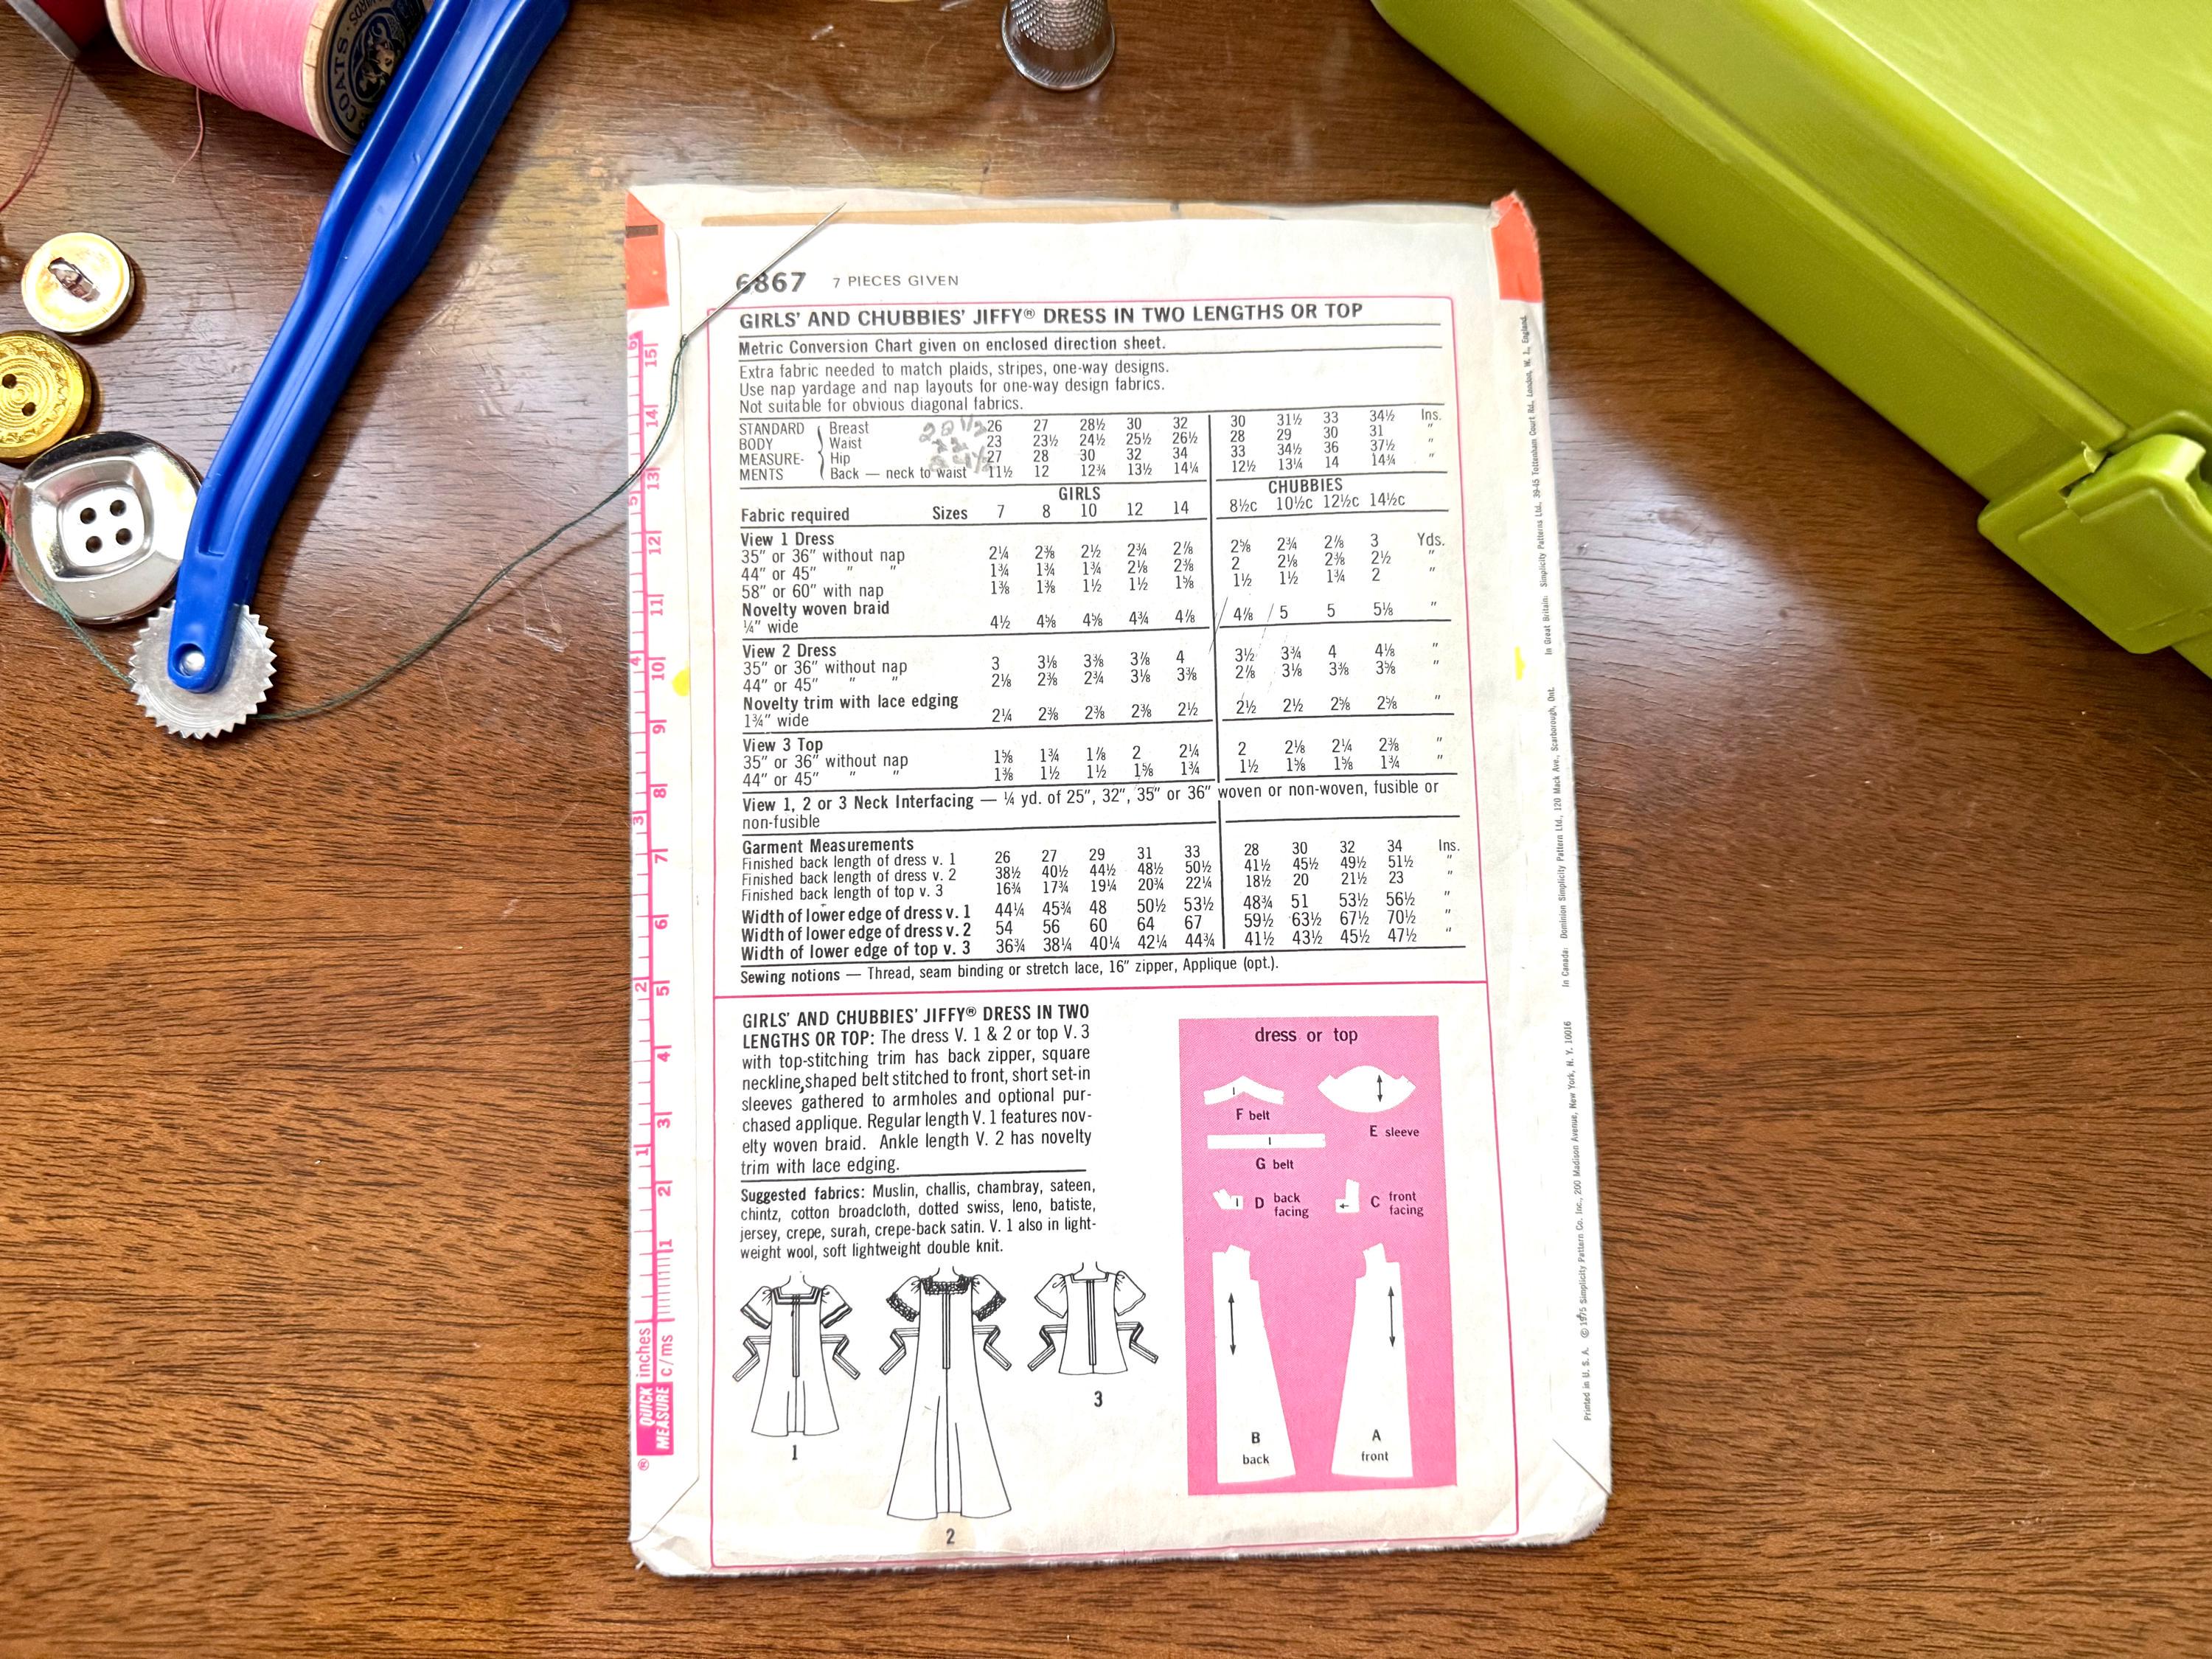 COATS
6867 7 PIECES GIVEN
GIRLS' AND CHUBBIES' JIFFY® DRESS IN TWO LENGTHS OR TOP
Metric Conversion Chart given on enclosed direction sheet.
Extra fabric needed to match plaids, stripes, one-way designs.
Use nap yardage and nap layouts for one-way design fabrics.
Not suitable for obvious diagonal fabrics.
STANDARD Breast 26 27 28½ 30 32 30 31½ 33 34½ Ins.
BODY Waist 23 23½ 24½ 25½ 26½ 28 29 30 31 "
MEASURE- Hip 27 28 30 32 34 33 34½ 36 37½ "
MENTS Back — neck to waist 11½ 12 12¾ 13½ 14¼ 12½ 13¼ 14 14¾
GIRLS CHUBBIES
Fabric required Sizes 7 8 10 12 14 8½c 10½c 12½c 14½c
View 1 Dress
35" or 36" without nap 2¼ 2⅜ 2½ 2¾ 2⅞ 2⅝ 2¾ 2⅞ 3 Yds.
44" or 45" " " 1¾ 1¾ 1¾ 2⅛ 2⅜ 2 2⅛ 2⅜ 2½ "
58" or 60" with nap 1⅜ 1⅜ 1½ 1½ 1⅝ 1½ 1½ 1¾ 2 "
Novelty woven braid
¼" wide 4½ 4⅝ 4⅝ 4¾ 4⅞ 4⅞ 5 5 5⅛ "
View 2 Dress
35" or 36" without nap 3 3⅛ 3⅜ 3⅞ 4 3½ 3¾ 4 4⅛ "
44" or 45" " " 2⅛ 2⅜ 2¾ 3⅛ 3⅜ 2⅞ 3⅛ 3⅜ 3⅝ "
Novelty trim with lace edging
1¾" wide 2¼ 2⅜ 2⅜ 2⅜ 2½ 2½ 2½ 2⅝ 2⅝ "
View 3 Top
35" or 36" without nap 1⅝ 1¾ 1⅞ 2 2¼ 2 2⅛ 2¼ 2⅜ "
44" or 45" " " 1⅜ 1½ 1½ 1⅝ 1¾ 1½ 1⅝ 1⅝ 1¾ "
View 1, 2 or 3 Neck Interfacing — ¼ yd. of 25", 32", 35" or 36" woven or non-woven, fusible or
non-fusible
Garment Measurements
Finished back length of dress v. 1 26 27 29 31 33 28 30 32 34 Ins.
Finished back length of dress v. 2 38½ 40½ 44½ 48½ 50½ 41½ 45½ 49½ 51½ "
Finished back length of top v. 3 16¾ 17¾ 19¼ 20¾ 22¼ 18½ 20 21½ 23 "
Width of lower edge of dress v. 1 44¼ 45¾ 48 50½ 53½ 48¾ 51 53½ 56½ "
Width of lower edge of dress v. 2 54 56 60 64 67 59½ 63½ 67½ 70½ "
Width of lower edge of top v. 3 36¾ 38¼ 40¼ 42¼ 44¾ 41½ 43½ 45½ 47½ "
Sewing notions — Thread, seam binding or stretch lace, 16" zipper, Applique (opt.).
GIRLS' AND CHUBBIES' JIFFY® DRESS IN TWO
LENGTHS OR TOP: The dress V. 1 & 2 or top V. 3
with top-stitching trim has back zipper, square
neckline,shaped belt stitched to front, short set-in
sleeves gathered to armholes and optional pur-
chased applique. Regular length V. 1 features nov-
elty woven braid. Ankle length V. 2 has novelty
trim with lace edging.
Suggested fabrics: Muslin, challis, chambray, sateen,
chintz, cotton broadcloth, dotted swiss, leno, batiste,
jersey, crepe, surah, crepe-back satin. V. 1 also in light-
weight wool, soft lightweight double knit.
1
2
3
dress or top
F belt
E sleeve
G belt
D back facing
C front facing
B back
A front
15
14
13
12
11
10
9
8
7
6
5
4
3
2
1
6
5
4
3
2
1
QUICK inches
MEASURE c/ms
®
Printed in U. S. A. © 1975 Simplicity Pattern Co. Inc., 200 Madison Avenue, New York, N. Y. 10016
In Canada: Dominion Simplicity Pattern Ltd., 120 Mack Ave., Scarborough, Ont.
In Great Britain: Simplicity Patterns Ltd., 39-45 Tottenham Court Rd., London, W. 1., England.